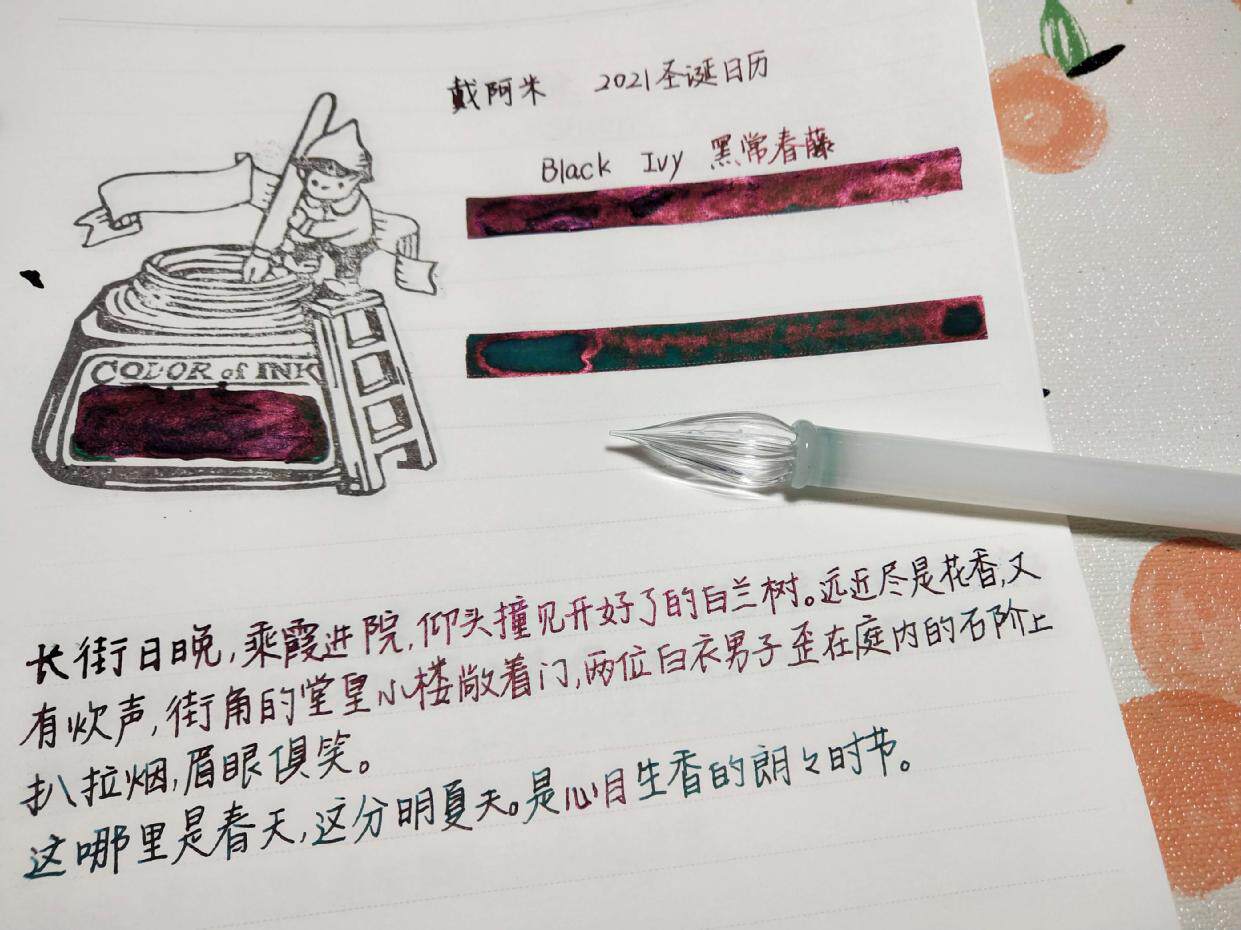 戴阿米 2021圣诞日历
Black Ivy 黑常春藤
COLOR of INK
长街日晚,乘霞进院,仰头撞见开好了的白兰树。远近尽是花香,又
有炊声,街角的堂皇小楼敞着门,两位白衣男子歪在庭内的石阶上
扒拉烟,眉眼俱笑。
这哪里是春天,这分明夏天。是心目生香的朗々时节。